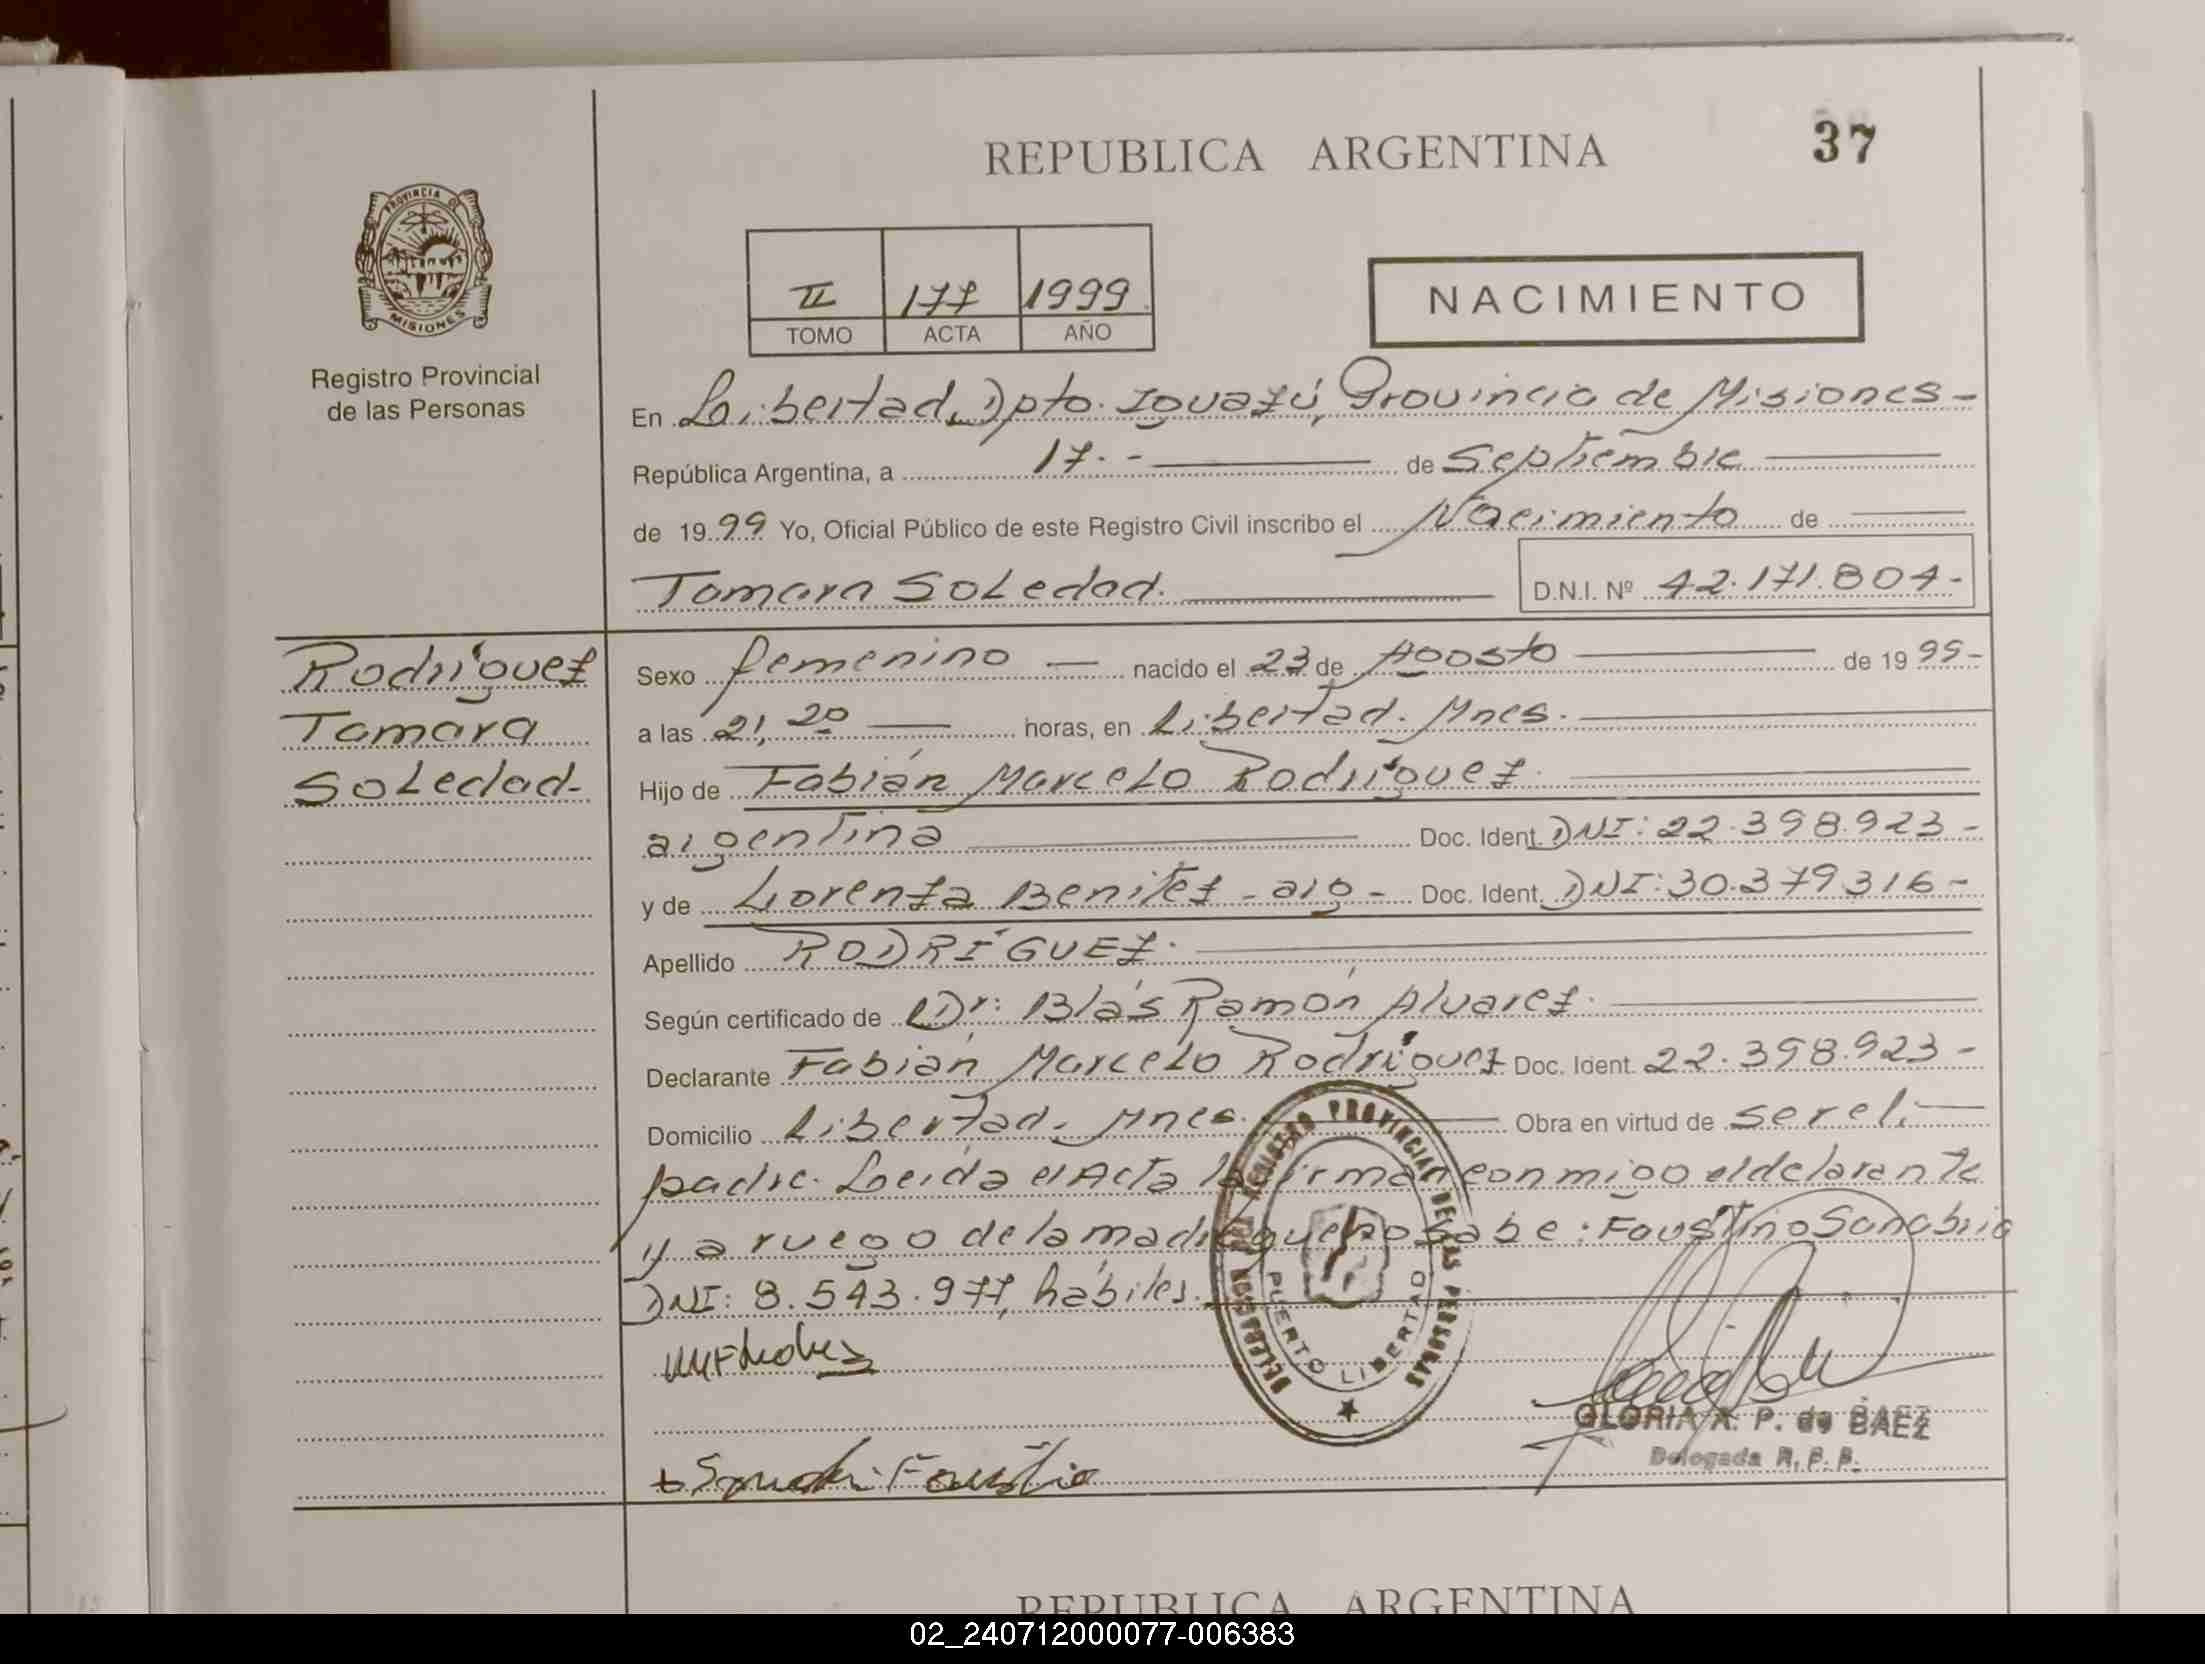 REPUBLICA ARGENTINA
37
PROVINCIA DE
MISIONES
Registro Provincial
de las Personas
II 177 1999
TOMO ACTA AÑO
NACIMIENTO
En Libertad, Dpto. Iguazú, Provincia de Misiones -
República Argentina, a 17.- de Septiembre
de 1999 Yo, Oficial Público de este Registro Civil inscribo el Nacimiento de
Tamara Soledad. D.N.I. Nº 42.171.804-
Rodríguez
Tamara
Soledad-
Sexo femenino - nacido el 23 de Agosto de 1999-
a las 21,20 horas, en Libertad. Mnes.
Hijo de Fabián Marcelo Rodríguez.
argentina Doc. Ident. DNI: 22.398.923-
y de Lorenza Benitez - arg - Doc. Ident. DNI: 30.379316-
Apellido RODRÍGUEZ.
Según certificado de Dr: Blás Ramón Alvarez.
Declarante Fabián Marcelo Rodríguez Doc. Ident. 22.398.923-
Domicilio Libertad. Mnes. Obra en virtud de ser el
padre. Leida el Acta la firman conmigo el delarante
y a ruego de la madre que no sabe: Faustino Sanabria
DNI: 8.543.977, hábiles.
DELEGACION DEL REGISTRO PROVINCIAL DE LAS PERSONAS
PUERTO LIBERTAD
GLORIA A. P. de BAEZ
Delegada R. P. P.
REPUBLICA ARGENTINA
02_240712000077-006383